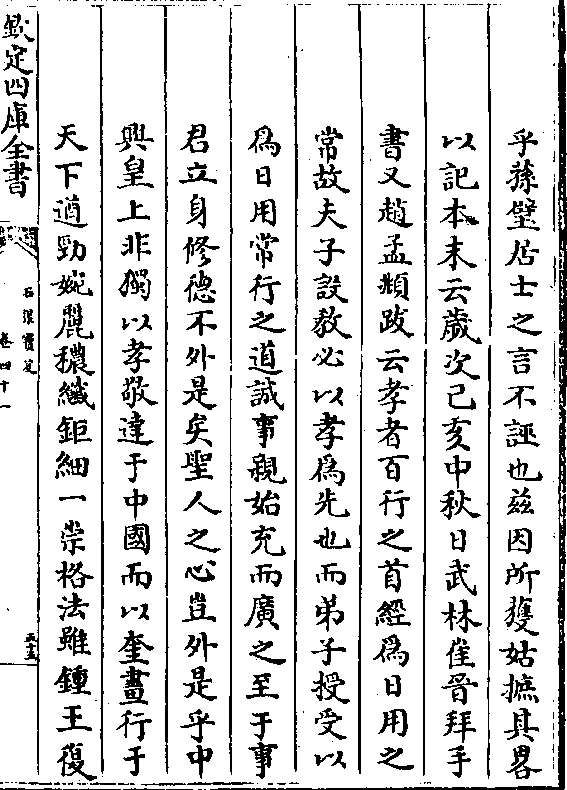 乎蓀壁居士之言不誣也兹因所獲姑摭其畧
以記本末云歲次己亥中秋日武林崔晉拜手
書又趙孟頫跋云孝者百行之首經爲日用之
常故夫子設教必以孝爲先也而弟子授受以
爲日用常行之道誠事親始充而廣之至于事
君立身修德不外是矣聖人之心豈外是乎中
興皇上非獨以孝敬達于中國而以奎畫行于
天下遒勁婉麗穠纖鉅細一崇格法雖鍾王復
欽定四庫全書
石渠寶笈
卷四十一